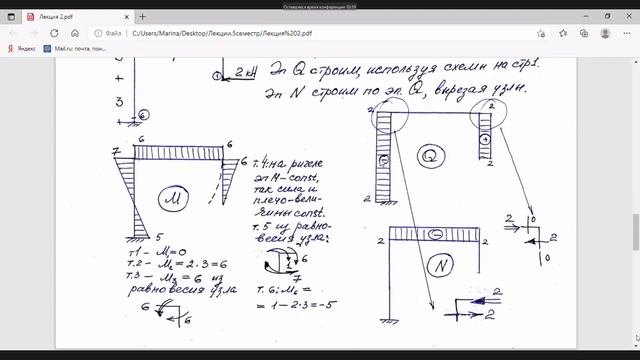 Оставшееся время конференции: 03:59
Лекция 2.pdf
C:/Users/Marina/Desktop/Лекции.5семестр/Лекция%202.pdf
Яндекс
Mail.ru: почта, пои...
3
+
3
6
1
2 кН
Эп Q строим, используя схемы на стр1.
Эп N строим по эп. Q, вырезая узлы.
7
6
6
6
M
5
т.1 – M₁=0
т.2 – M₂ = 2·3 = 6
т.3 – M₃ = 6 из
равновесия узла
6
6
т.4: на ригеле
эп M – const,
так сила и
плечо – вели-
чины const.
т.5 из равно-
весия узла:
1
6
7
т. 6: M₆ =
= 1 – 2·3 = –5
2
2
2
2
Q
–
+
2
2
–
N
2
0
2
0
2
2